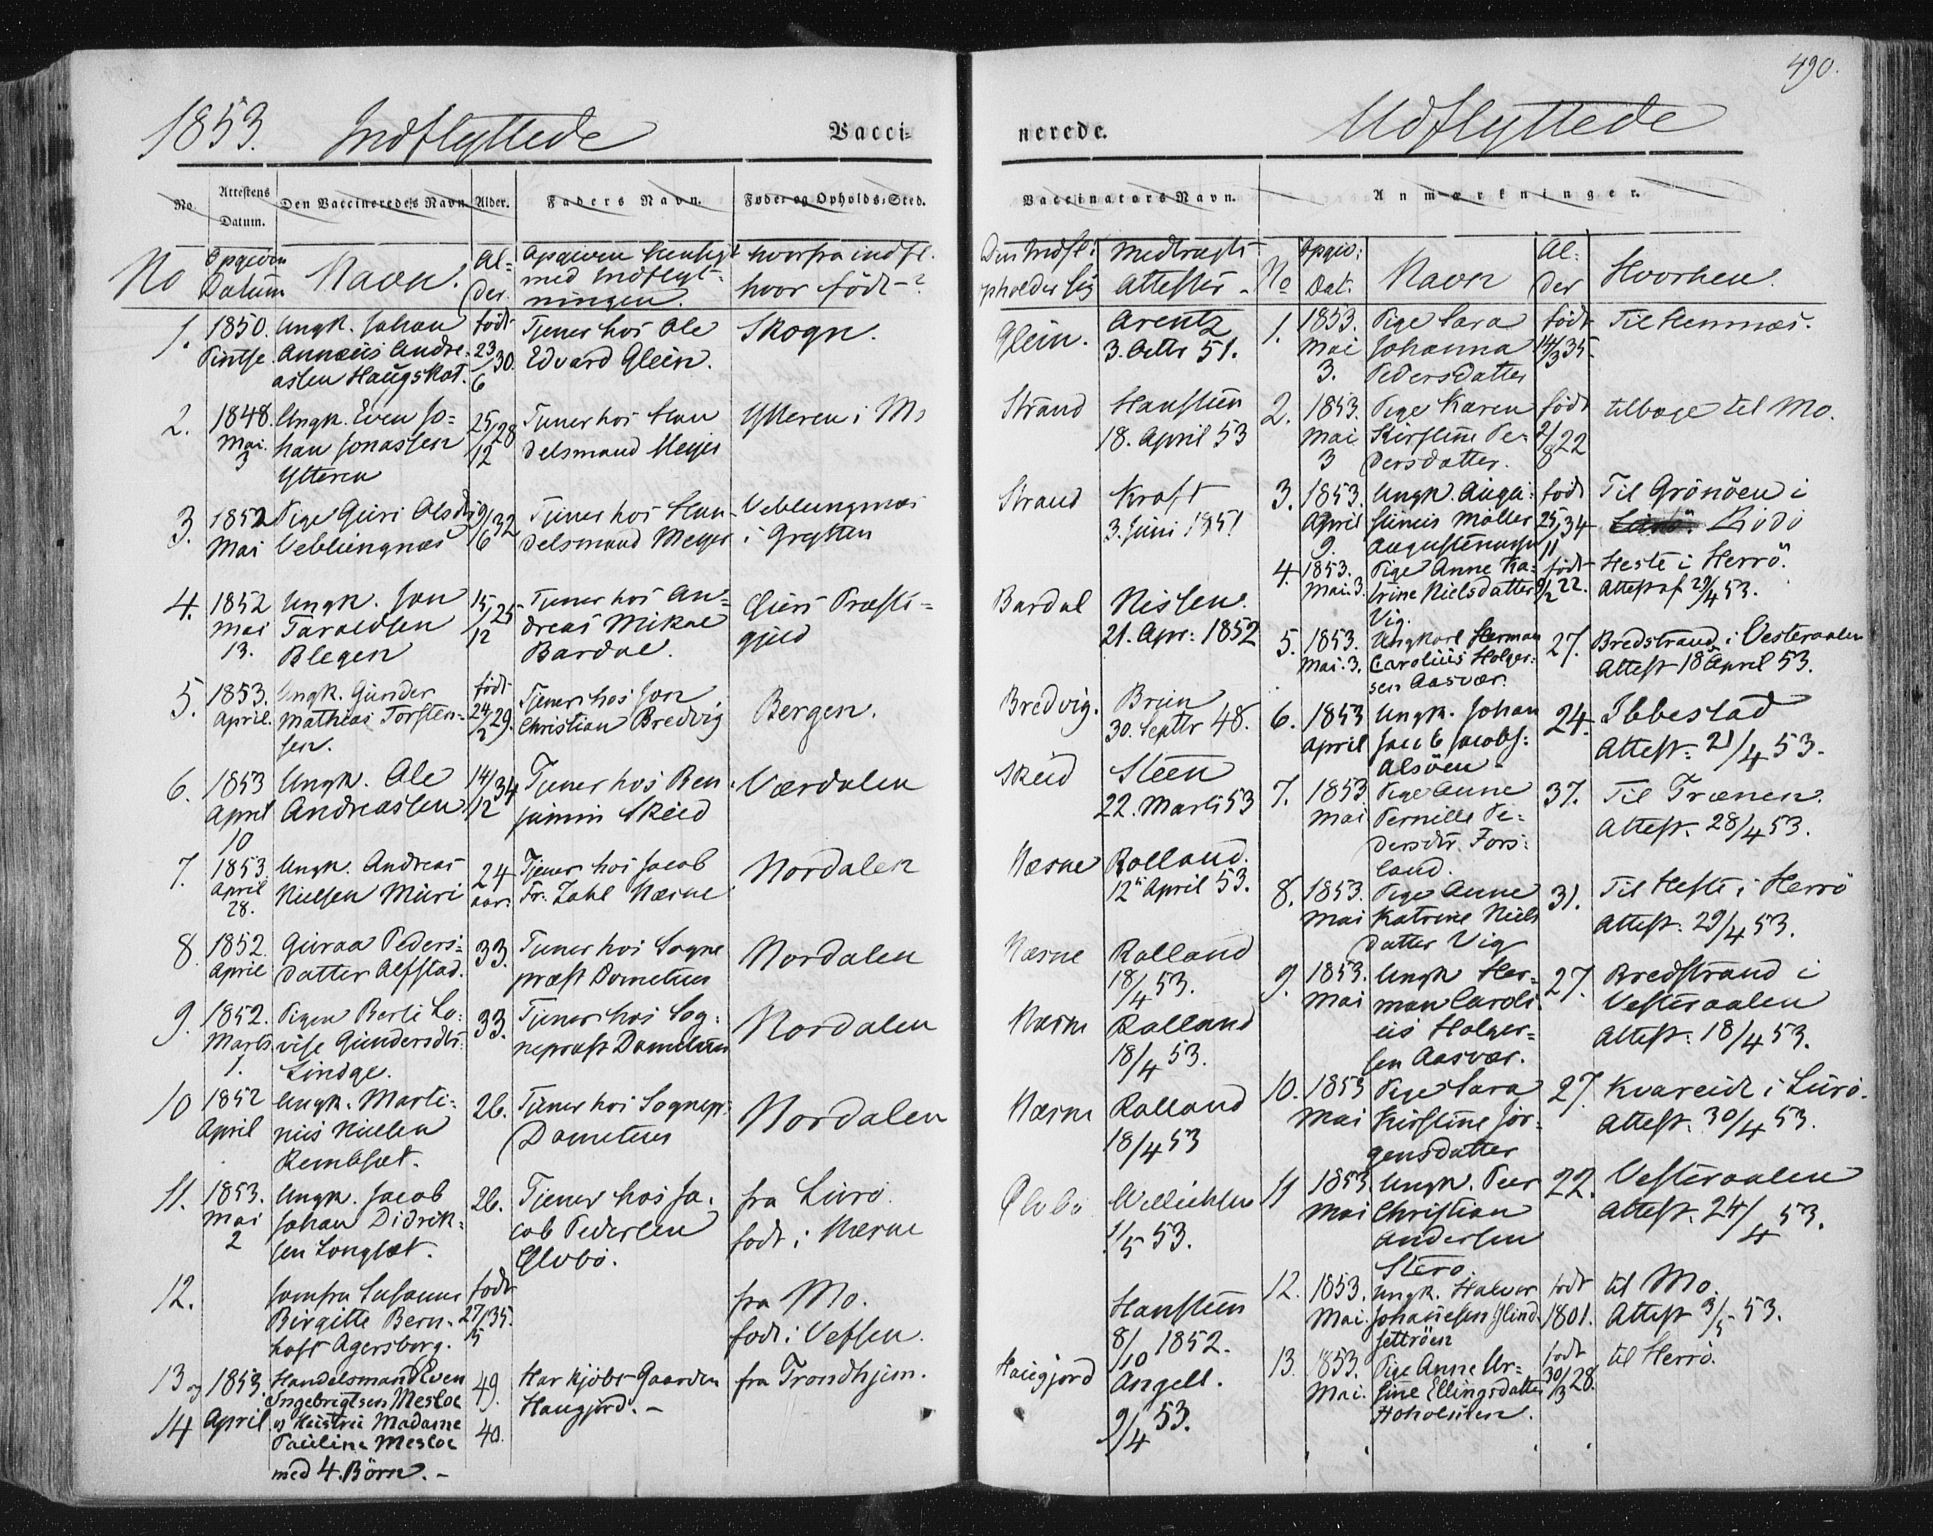 490.
1853. Indflyttede Vacci-
nerede. Udflyttede
No. Attestens Datum. Den Vaccineredes Navn. Alder. Faders Navn. Føde- og Opholds-Sted.
Vaccinators Navn. Anmærkninger.
No Opgiven Datum Navn. Al-der. Opgiven Hensigt med Indflyt-ningen. hvorfra indfl. hvor født-?
1. 1850. Pintse Ungk. Johan
Annæus Andre-
assen Haugskot. født 23/6 30. Tjener hos Ole
Edvard Glein. Skogn.
Glein. Arentz
3. Octbr 51.
2. 1848. Mai 3 Ungk. Even Jo-
han Jonassen
Ytteren 25/12 28 Tjener hos Han
delsmand Meyer Ytteren i Mo
Strand
18. April 53
3. 1852 Mai Pige Guri Olsdtr
Veblungnæs 9/6 32 Tjener hos Han-
delsmand Meyer Veblungnæs
i Grytten
Strand Kraft
3. Juni 1851
4. 1852 Mai 13. Ungk. Jon
Taraldsen
Blegen 15/12 25 Tjener hos An-
dreas Mikal
Bardal. Præste-
gjeld
Bardal Nissen.
21. Apr: 1852
5. 1853. April. Ungk. Gunder
Mathias Torsten-
sen. født 24/2 29. Tjener hos Jon
Christian Bredvig Bergen.
Bredvig. Brun
30. Septbr 48.
6. 1853 April 10 Ungk. Ole
Andreassen 14/12 34 Tjener hos Ben
jamin Skeid Værdalen
Skeid Steen
22. Marts 53
7. 1853 April 28. Ungk. Andreas
Nielsen Muri 24 aar. Tjener hos Jacob
Fr. Zahl Næsne Nordalen
Næsne Rolland.
12te April 53.
8. 1852. April Guraa Peders-
datter Alfstad. 33. Tjener hos Sogne
præst Dometius Nordalen
Næsne Rolland
18/4 53.
9. 1852. Marts 1. Pigen Berte Lo-
vise Gundersdtr
Lindge. 33. Tjener hos Sog-
nepræst Dometius Nordalen
Næsne Rolland
18/4 53.
10 1852 April Ungk. Marti-
nus Nielsen
Rembsæt. 26. Tjener hos Sognepr.
Dometius Nordalen
Næsne Rolland
18/4 53
11. 1853. Mai 2 Ungk. Jacob
Johan Didrik-
sen Langsæt. 26. Tjener hos Ja-
cob Pedersen
Olvbø. fra Lurø.
født i Næsne
1/5 53.
12. Jomfru Susanne
Birgitte Bern-
hoft Agersborg. født 27/5 35. fra Mo.
født i Vefsen.
8/10 1852.
13 og 14 1853. April. Handelsmand Even
Ingebrigtsen Mesloe
og Hustru Madame
Pauline Mesloe
med 4. Børn. - 49. 40. Har kjøbt Gaarden
Haugjord. - fra Trondhjem.
Haugjord Angell.
9/4 53.
No Opgiv: Dat. Navn Al-der Hvorhen.
1. 1853. Mai 3. Pige Sara
Johanna
Pedersdatter født 14/3 35 Til Hemnæs.
2. 1853. Mai 3 Pige Karen
Kirstine Pe-
dersdatter. født 2/8 22 tilbage til Mo.
3. 1853. April 9. Ungk.
Møller
født 25/11 34 Til Grönöen i
Rödö
4. 1853. Mai. 3. Pige Anne Ka-
trine Nielsdatter
Vig. født 9/2 22. Heste i Herrö.
Attest af 29/4 53.
5. 1853. Mai. 3. Ungkarl Herman
Carolius Holger-
sen Aasvær. 27. Bredstrand i Vesteraalen
Attest 18 April 53.
6. 1853 April Ungk. Johan
Jacob Jacobs:
Alsöen 24. Ibbestad
Attest: 21/4 53.
7. 1853 Mai Pige Anne
Pernille Pe-
dersdtr. Fors-
land. 37. Til Trænen.
Attest. 28/4 53.
8. 1853. Mai Pige Anne
Katrine Niels
datter Vig 31. Til Heste i Herrö
Attest: 29/4 53.
9. 1853. Mai Ungk Her-
man Caroli
us Holger-
sen Aasvær. 27. Bredstrand i
Vesteraalen
Attest: 18/4 53.
10. 1853 Mai Pige Sara
Kirstine Jör-
gensdatter 27. Kvareid i Lurö.
Attest. 30/4 53.
11 1853. Mai Ungk. Peer
Christian
Andersen
Sterø. 22. Vesteraalen
Attest. 24/4 53.
12. 1853. Mai. Ungk. Halvor
Johannesen født 1801. til Mo.
Attest 3/5 53.
13. 1853. Mai. Pige Anne Ur-
sine Ellingsdatter
Hoholmen. født 30/3 28. til Herrö.